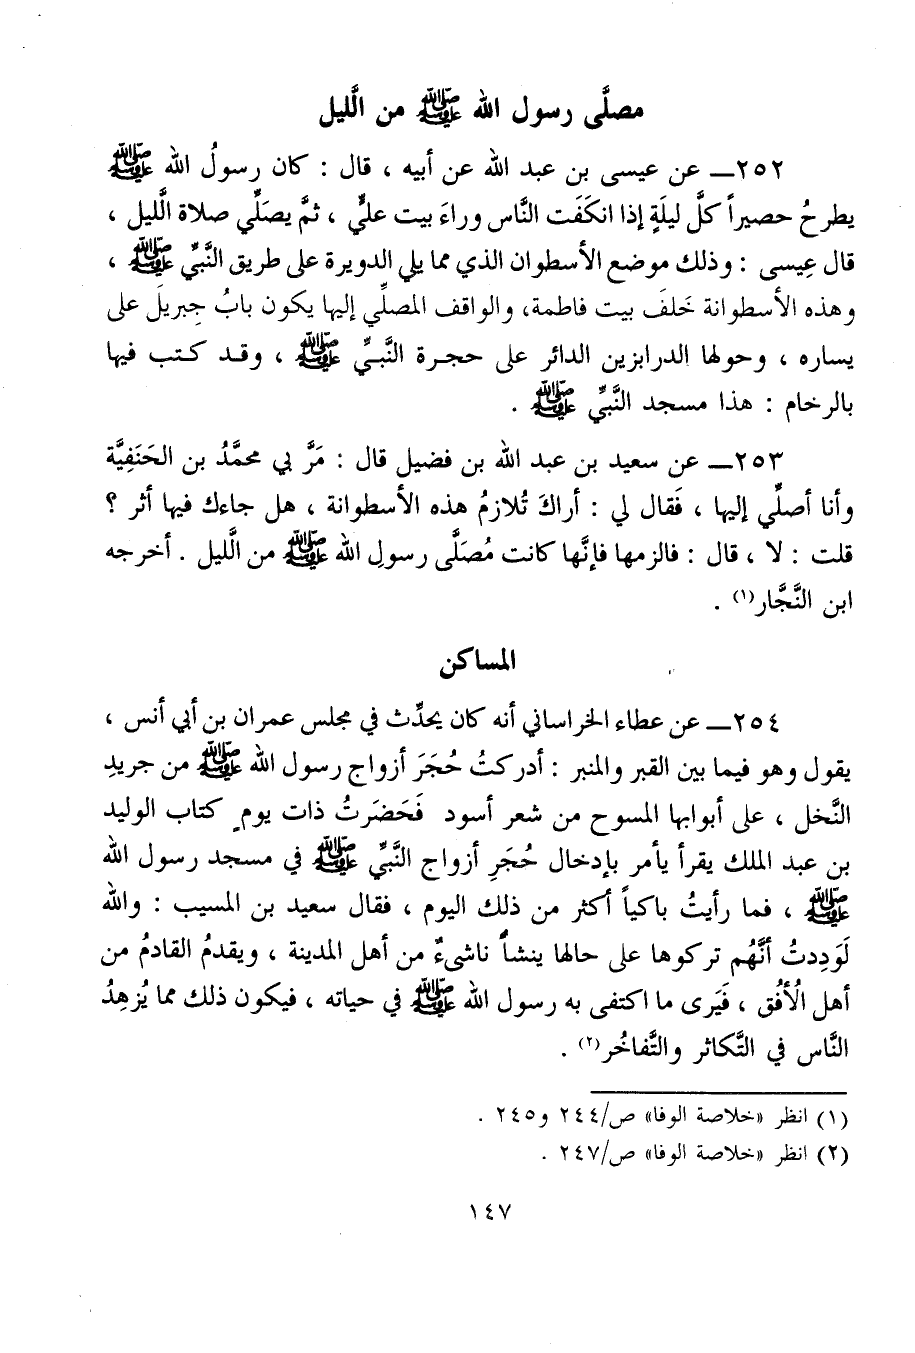 مصلَّى رسول الله ﷺ من الَّليل
٢٥٢ـ عن عيسى بن عبد الله عن أبيه ، قال : كان رسولُ الله ﷺ
يطرحُ حصيراً كلَّ ليلَةٍ إذا انكَفَت النَّاس وراءَ بيت عليٍّ ، ثمَّ يصَلِّي صلاة الَّليل ،
قال عِيسى : وذلك موضع الأسطوان الذي مما يلي الدويرة على طريق النَّبيِّ ﷺ ،
وهذه الأسطوانة خَلفَ بيت فاطمة، والواقف المصلِّي إليها يكون بابُ جِبريلَ على
يساره ، وحولها الدرابزين الدائر على حجرة النَّبيِّ ﷺ ، وقد كتب فيها
بالرخام : هذا مسجد النَّبيِّ ﷺ .
٢٥٣ـ عن سعيد بن عبد الله بن فضيل قال : مَرَّ بي محمَّدُ بن الحَنَفِيَّة
وأنا أصلِّي إليها ، فَقال لي : أراكَ تُلازمُ هذه الأسطوانة ، هل جاءك فيها أثر ؟
قلت : لا ، قال : فالزمها فإنَّها كانت مُصَلَّى رسولِ الله ﷺ من الَّليل . أخرجه
ابن النَّجَّار(١) .
المساكن
٢٥٤ـ عن عطاء الخراساني أنه كان يحدِّث في مجلس عمران بن أبي أنس ،
يقول وهو فيما بين القبر والمنبر : أدركتُ حُجَرَ أزواج رسول الله ﷺ من جريدِ
النَّخل ، على أبوابها المسوح من شعر أسود فَحَضَرتُ ذات يومٍ كتاب الوليد
بن عبد الملك يقرأ يأمر بإدخال حُجَرِ أزواج النَّبيِّ ﷺ في مسجد رسول الله
ﷺ ، فما رأيتُ باكياً أكثر من ذلك اليوم ، فقال سعيد بن المسيب : والله
لَوَدِدتُ أنَّهُم تركوها على حالها ينشأُ ناشىءٌ من أهل المدينة ، ويقدمُ القادمُ من
أهل الأُفُق ، فَيَرى ما اكتفى به رسول الله ﷺ في حياته ، فيكون ذلك مما يُزهِدُ
النَّاس في التَّكاثر والتَّفاخُر(٢) .
(١) انظر «خلاصة الوفا» ص/٢٤٤ و٢٤٥ .
(٢) انظر «خلاصة الوفا» ص/٢٤٧ .
١٤٧